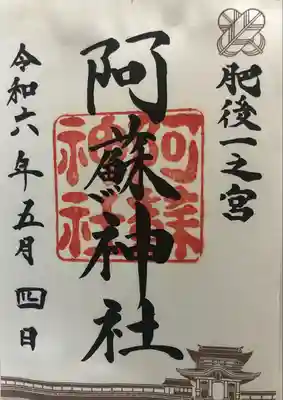 肥後一之宮
阿蘇神社
阿蘇
神社
令和六年五月四日